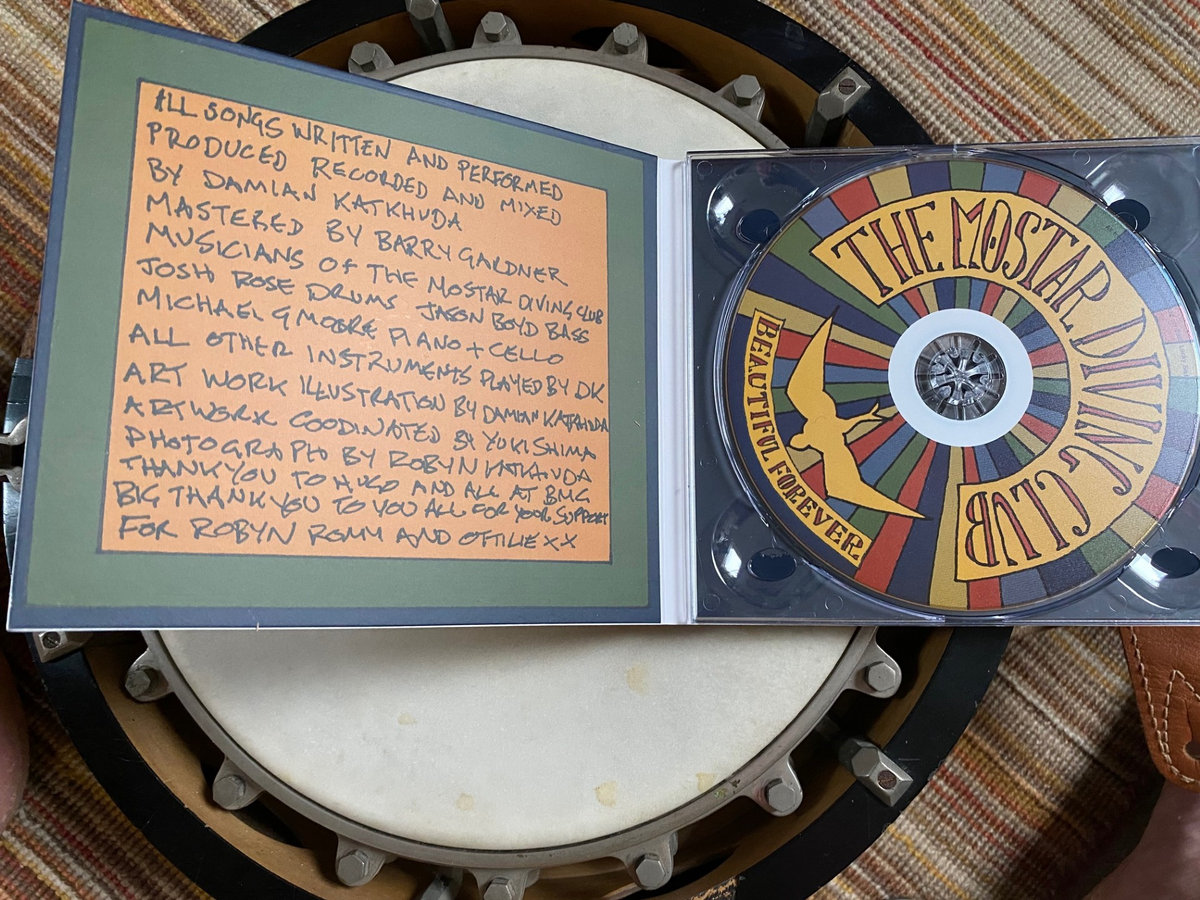 ALL SONGS WRITTEN AND PERFORMED
PRODUCED RECORDED AND MIXED
BY DAMIAN KATKHUDA
MASTERED BY BARRY GARDNER
MUSICIANS OF THE MOSTAR DIVING CLUB
JOSH ROSE DRUMS JASON BOYD BASS
MICHAEL G MOORE PIANO + CELLO
ALL OTHER INSTRUMENTS PLAYED BY DK
ART WORK ILLUSTRATION BY DAMIAN KATKHUDA
ARTWORK COODINATED BY YUKI SHIMA
PHOTOGRAPHD BY ROBYN KATKHUDA
THANK YOU TO HUGO AND ALL AT BMG
BIG THANK YOU TO YOU ALL FOR YOUR SUPPORT
FOR ROBYN ROMY AND OTTILIE XX
THE MOSTAR DIVING CLUB
BEAUTIFUL FOREVER